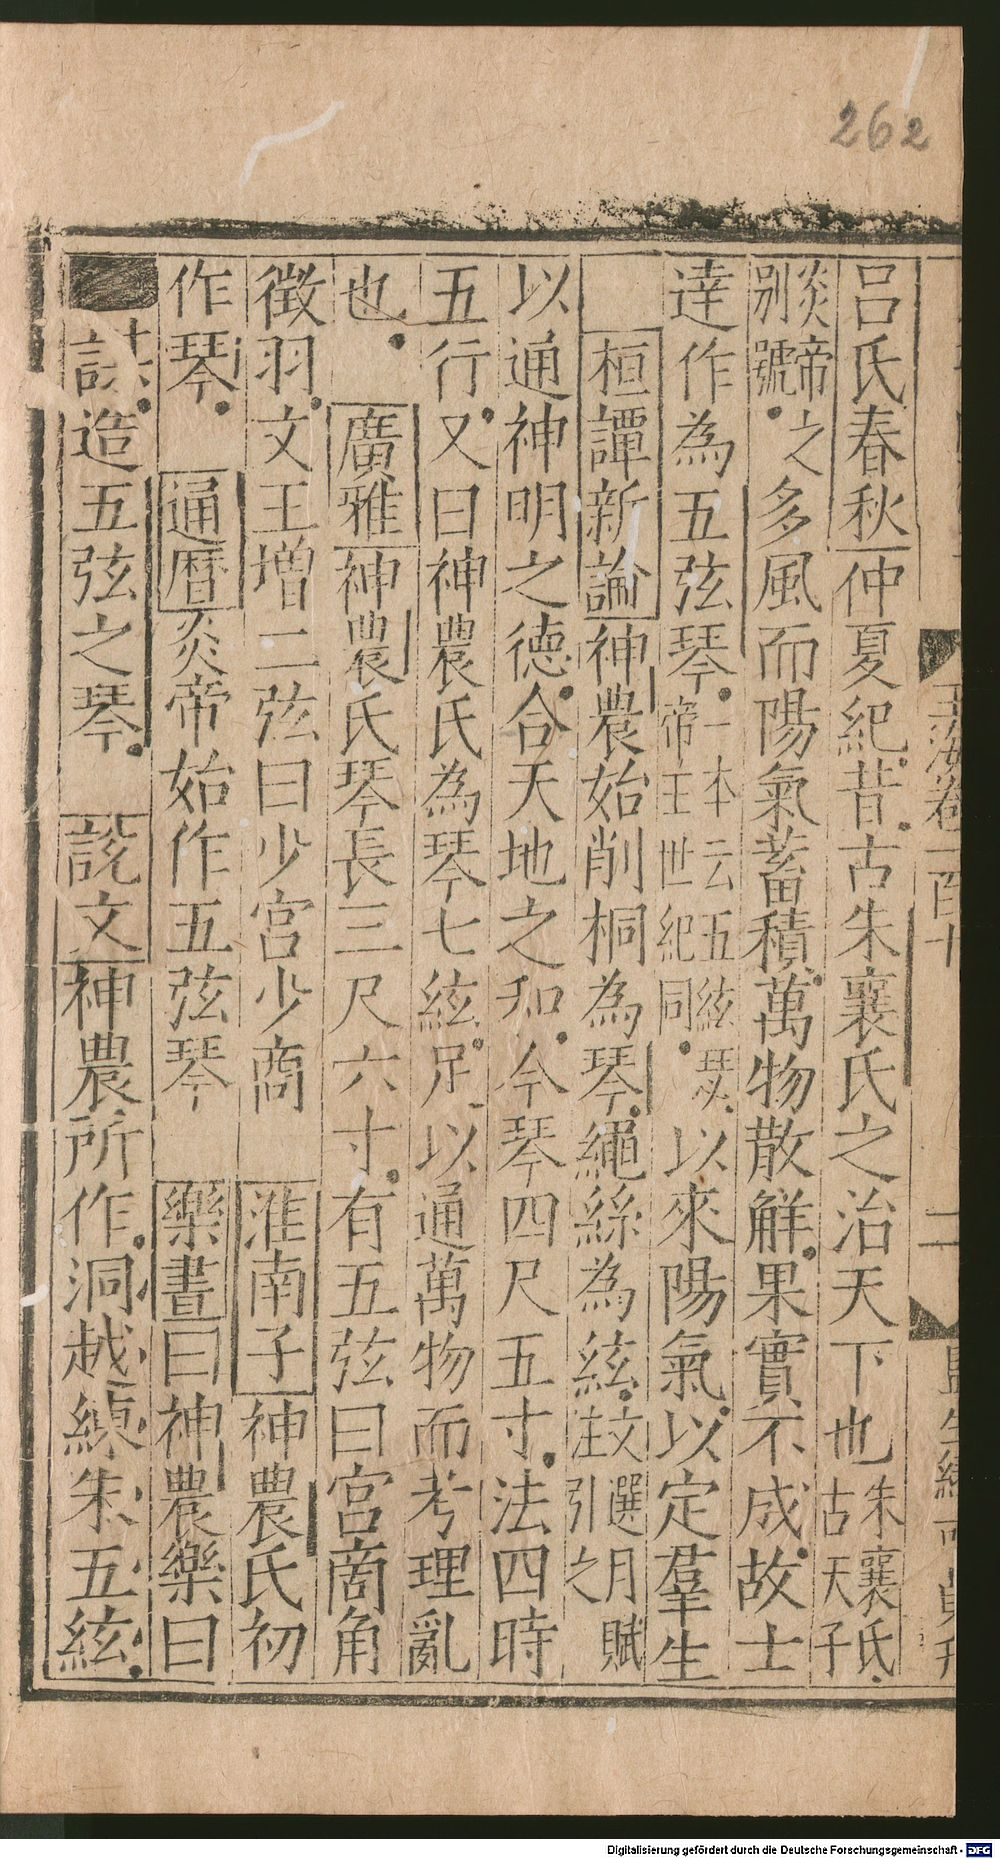 262
呂氏春秋仲夏紀昔古朱襄氏之治天下也朱襄氏古天子
炎帝之別號多風而陽氣蓄積萬物散解果實不成故士
達作為五弦琴一本云五絃瑟帝王世紀同以來陽氣以定羣生
桓譚新論神農始削桐為琴繩絲為絃文選月賦注引之
以通神明之德合天地之和今琴四尺五寸法四時
五行又曰神農氏為琴七絃足以通萬物而考理亂
也廣雅神農氏琴長三尺六寸有五弦曰宮商角
徵羽文王增二弦曰少宮少商淮南子神農氏初
作琴通曆炎帝始作五弦琴樂書曰神農樂曰
謀造五弦之琴說文神農所作洞越練朱五絃
玉海卷一百十
二
Digitalisierung gefördert durch die Deutsche Forschungsgemeinschaft - DFG